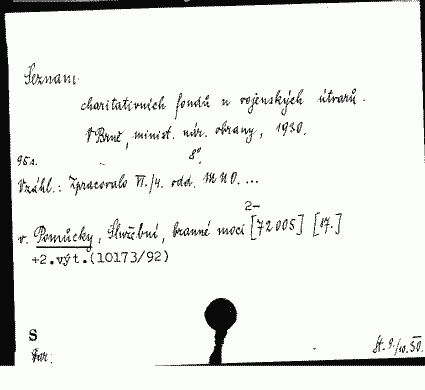 Seznam
charitativních fondů u vojenských útvarů.
V Brně, minist. nár. obrany, 1930.
95 s. 8°.
V záhl.: Zpracovalo VI./4. odd. MNO. ...
2-
v. Pomůcky, Služební, branné moci [72005] [17.]
+2.výt.(10173/92)
S